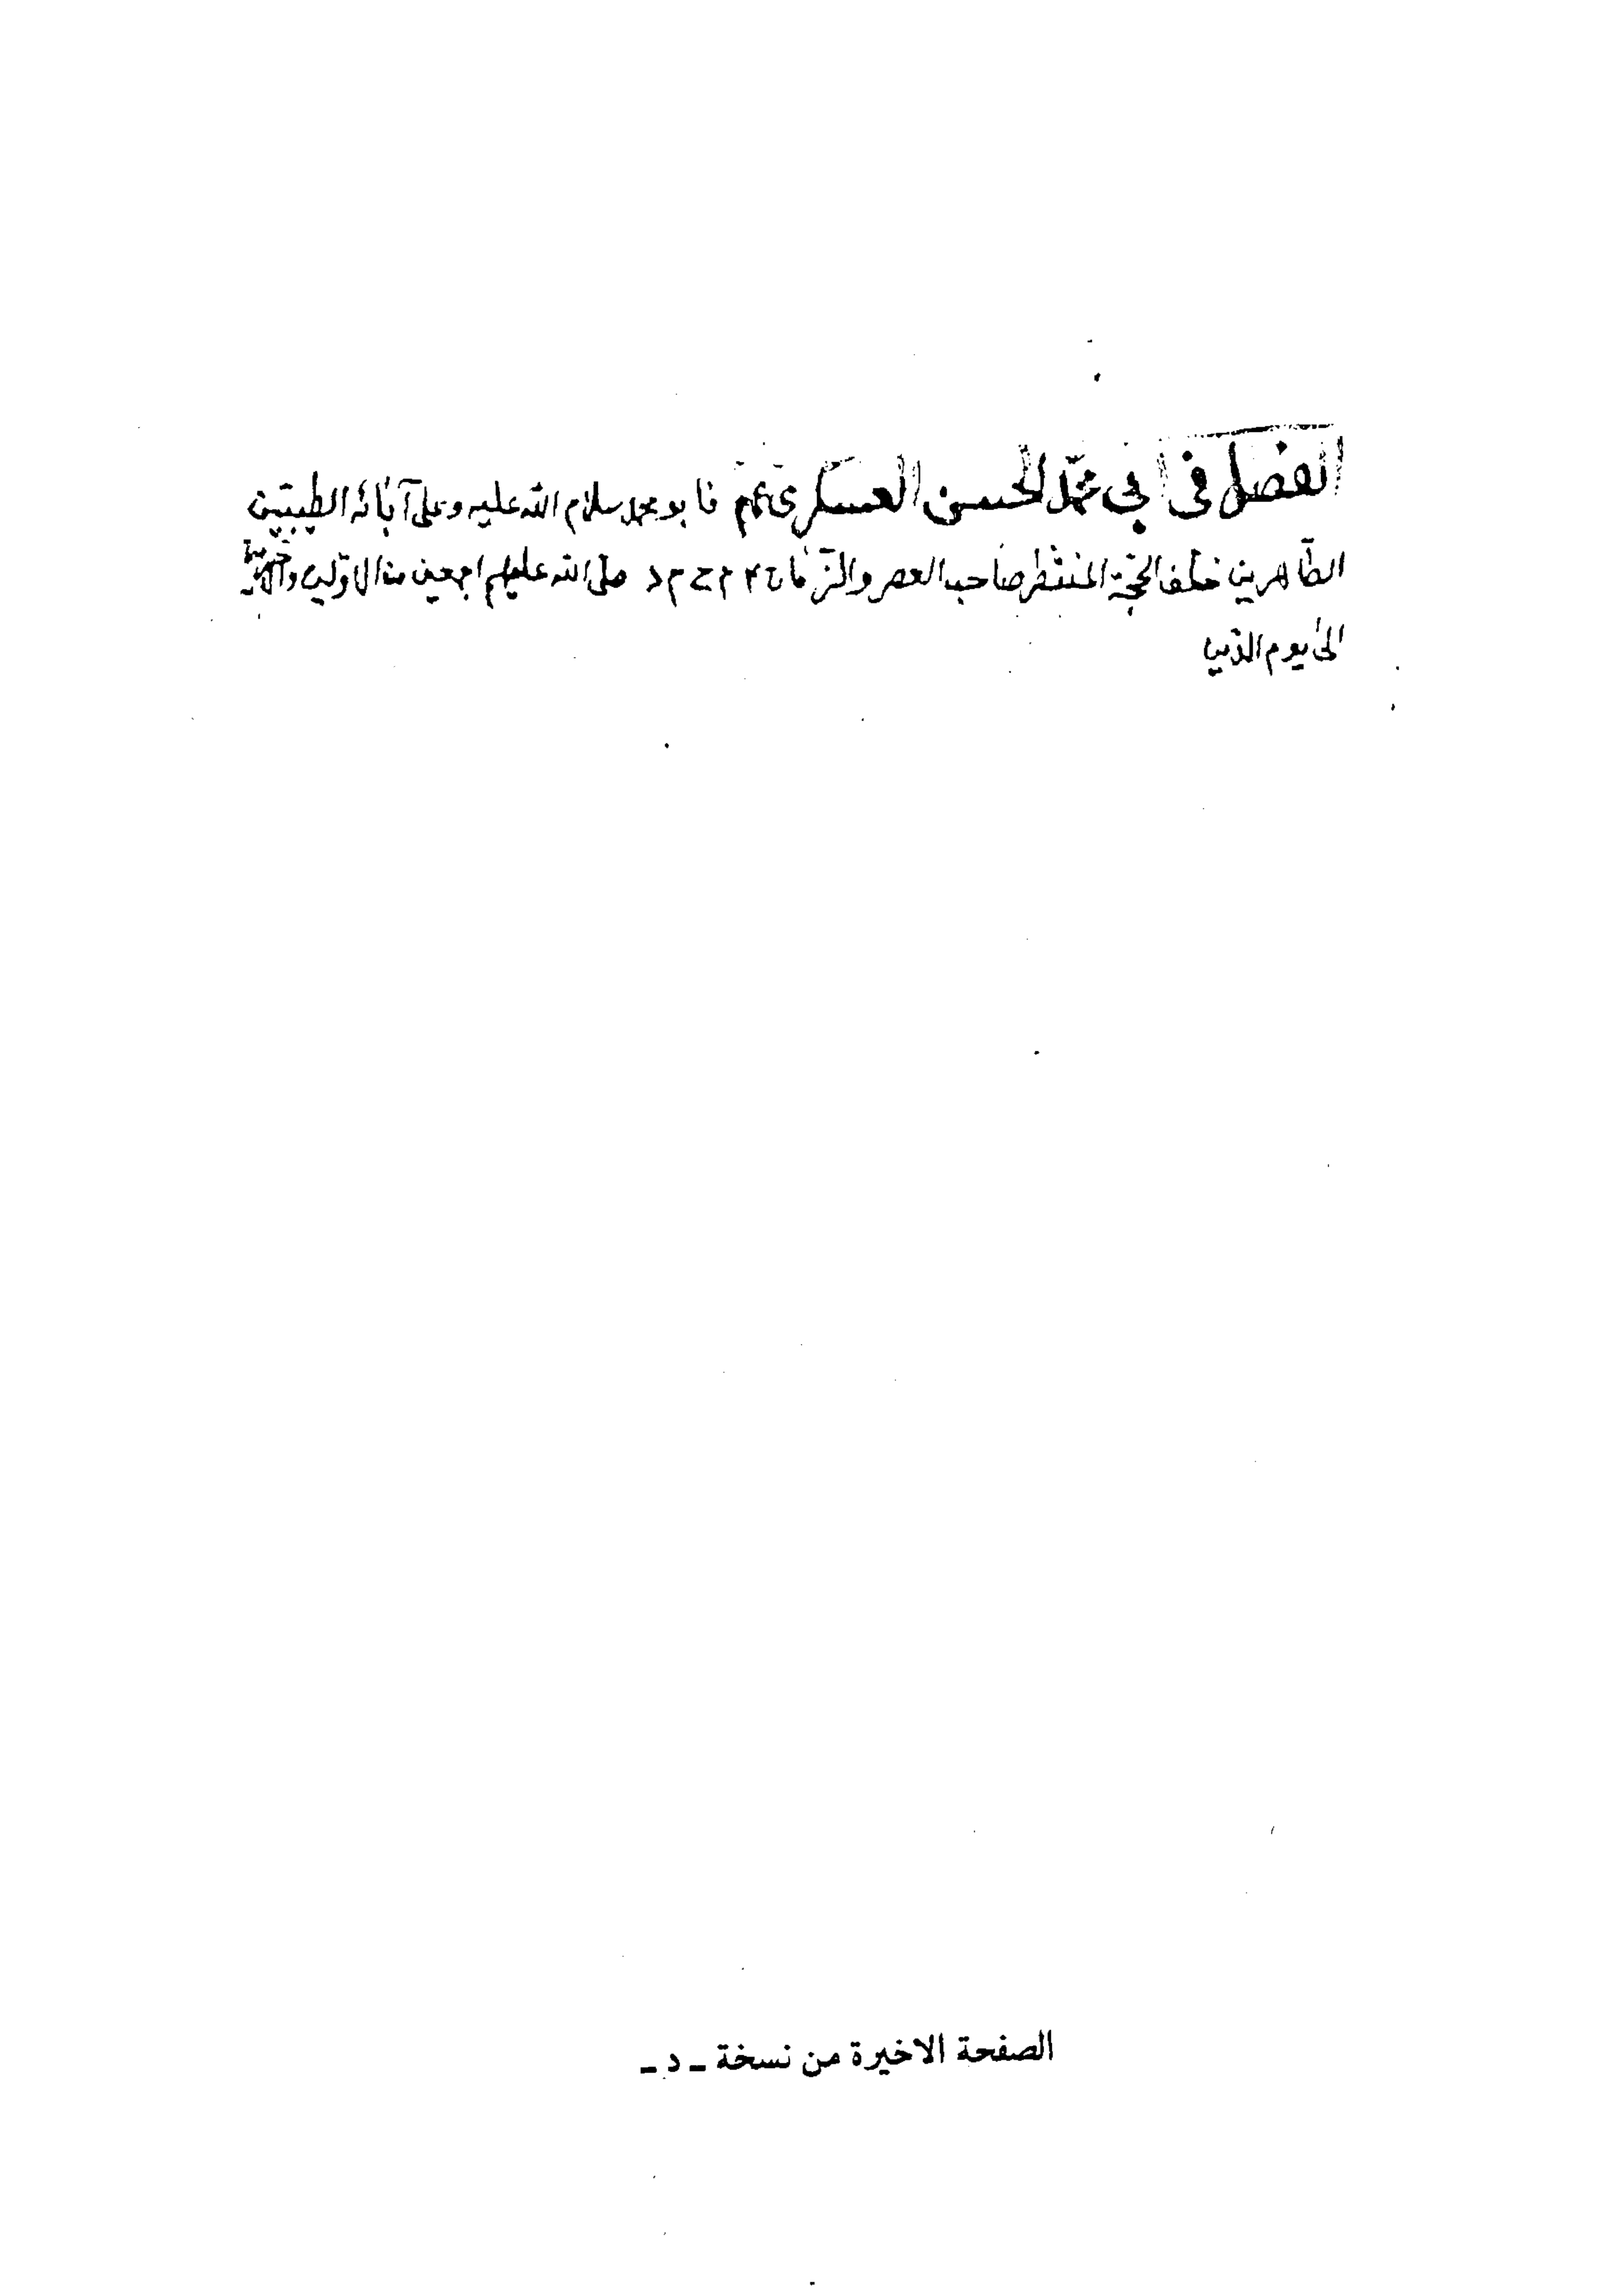 الفصل فى ابي محمّد الحسن العسكرى فابو محمد سلام الله عليه وعلى آبائه الطيبين
الطّاهرين خلف الحجّة المنتظر صاحب العصر والزّمان م ح م د صلى الله عليهم اجمعين من الاوّلين والآخرين
الى يوم الدّين
الصفحة الاخيرة من نسخة ـ د ـ